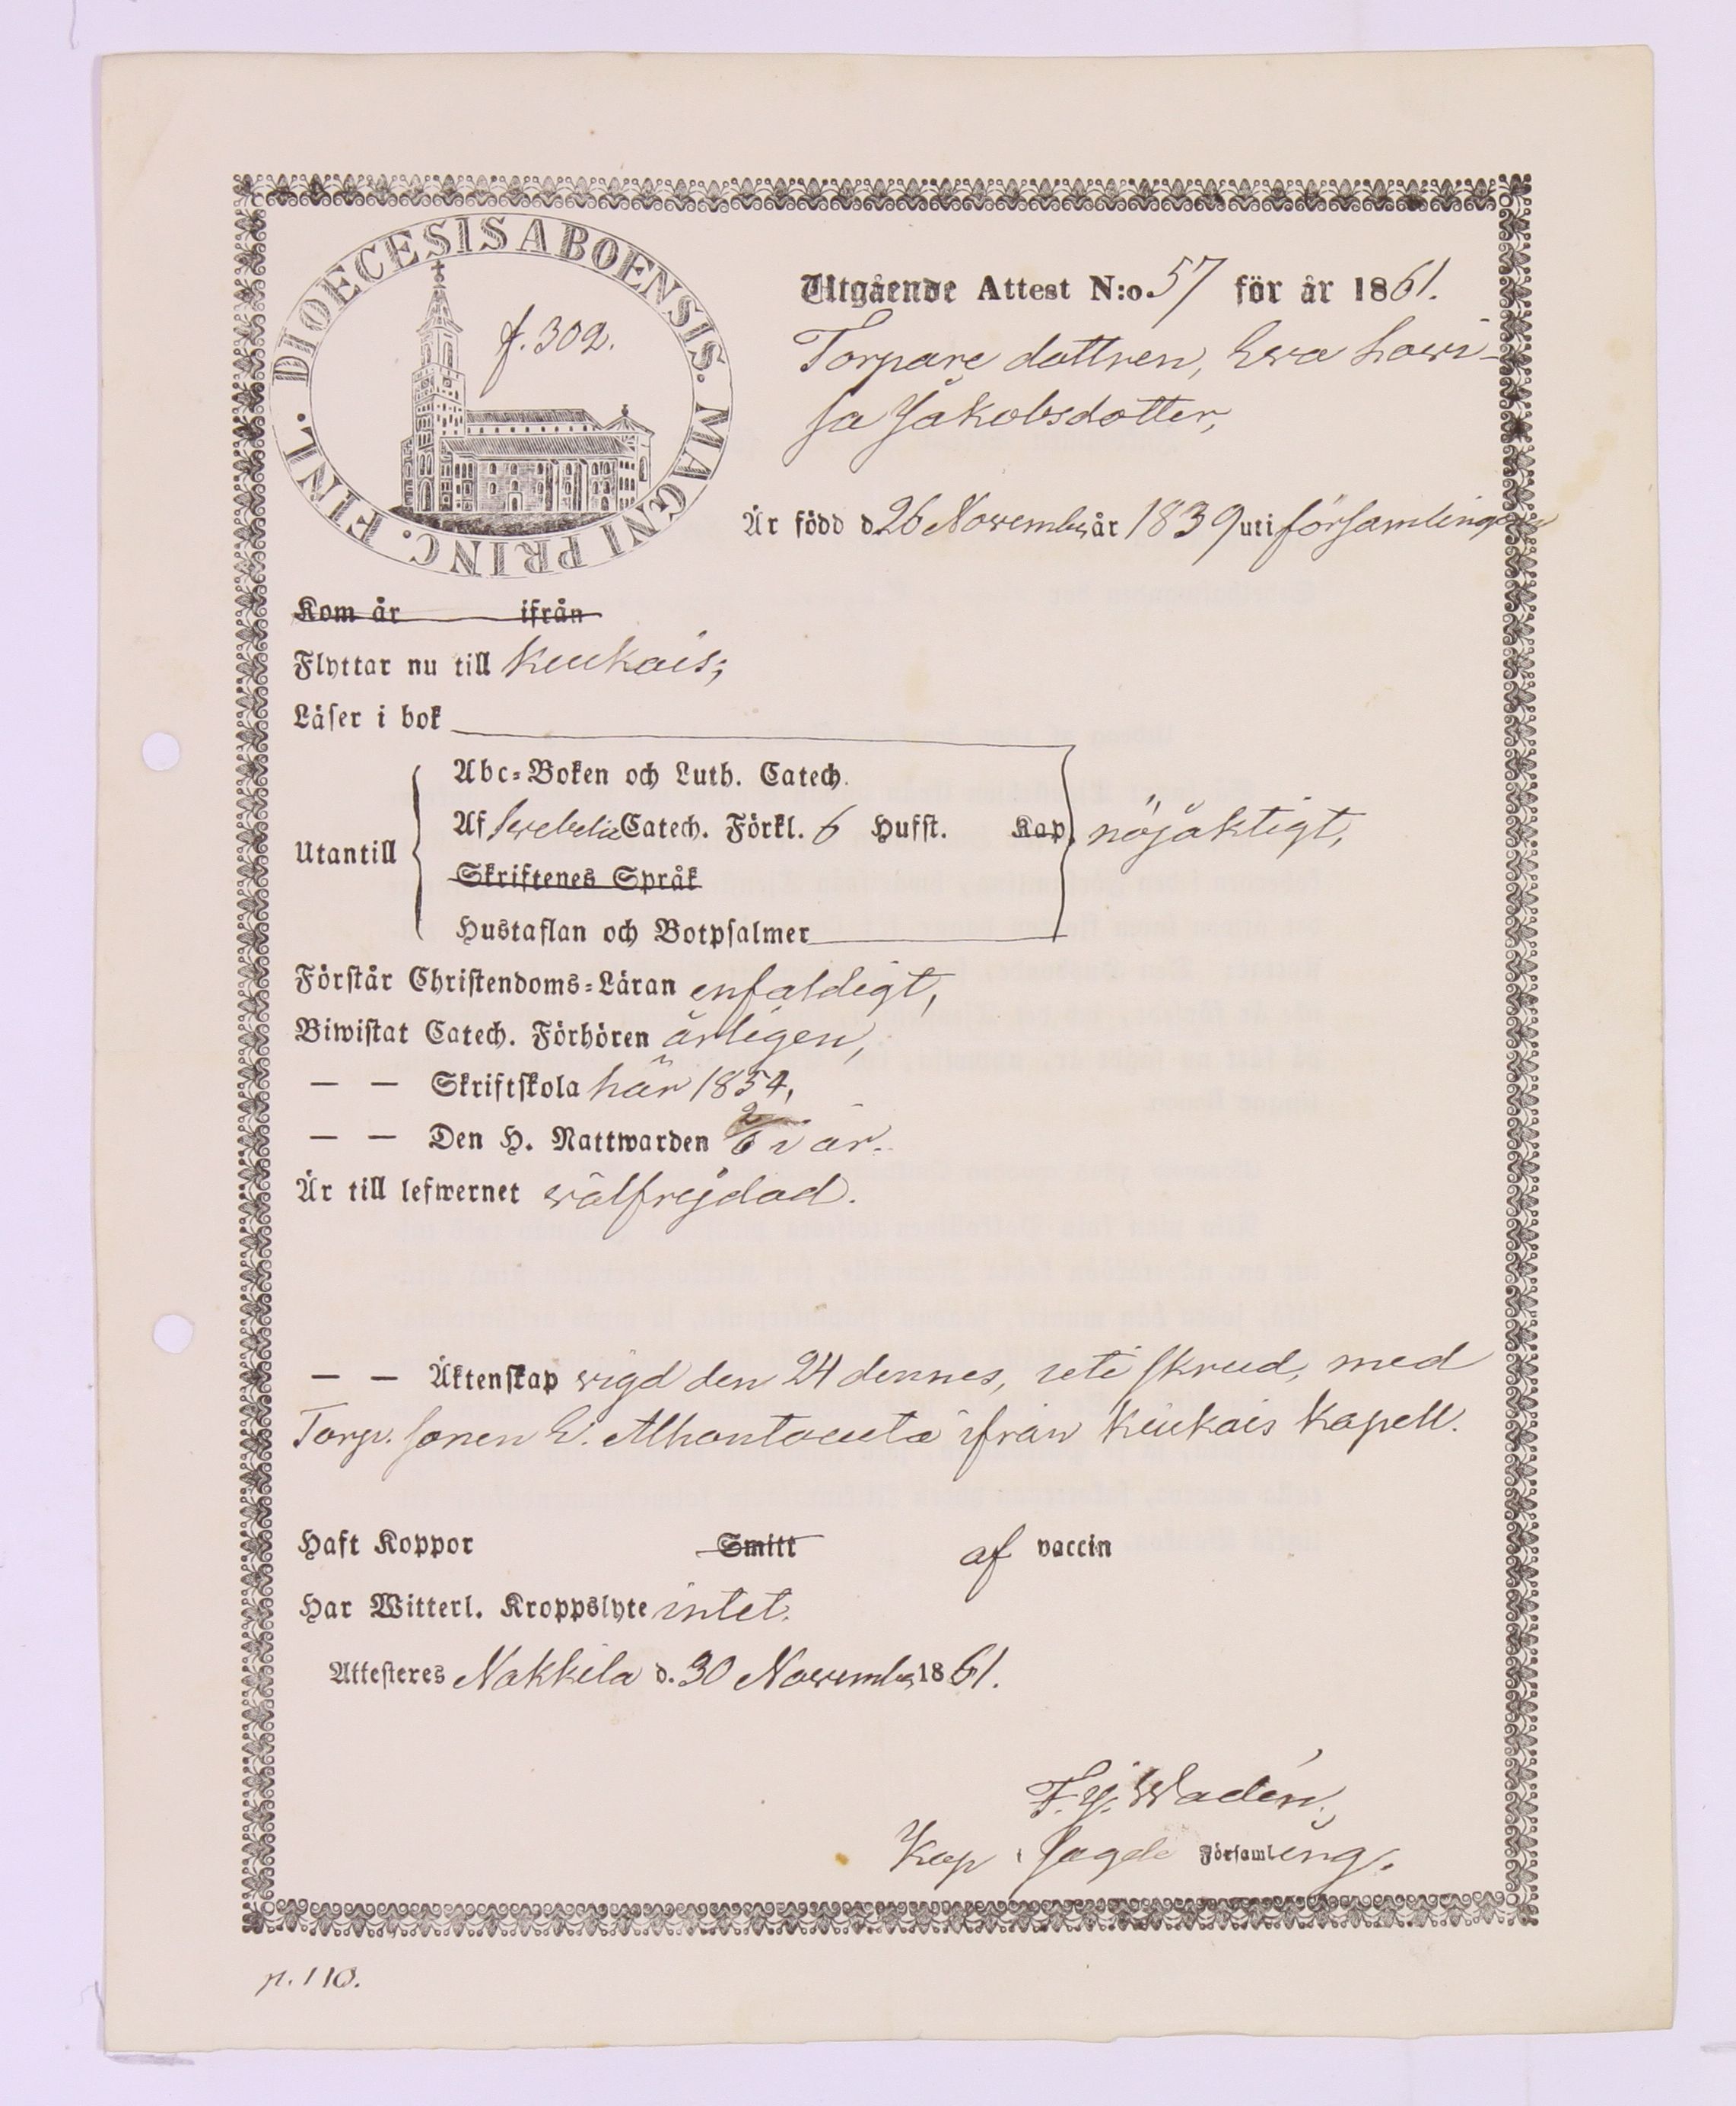 DIOECESIS ABOENSIS. MAGNI PRINC. FINL.
f. 302.
Utgående Attest N:o 57 för år 1861.
Torpare dottren, Ewa Lowi-
sa Jakobsdotter,
Är född d. 26 November år 1839 uti församlingen
Kom år ifrån
Flyttar nu till Kiukais;
Läser i bok
Abc-Boken och Luth. Catech.
Utantill
Af Swebelii Catech. Förkl. 6 Hufst. Kap. nöjaktigt,
Skriftenes Språk
Hustaflan och Botpsalmer
Förstår Christendoms-Läran enfaldigt,
Biwistat Catech. Förhören årligen,
— — Skriftskola här 1854,
— — Den H. Nattwarden 2/6 i år.
Är till lefwernet wälfrejdad.
— — Äktenskap wigd den 24 dennes, uti skrud, med
Torp. sonen E. Ahontausta ifrån Kiukais Kapell.
Haft Koppor Smitt af vaccin
Har Witterl. Kroppslyte intet.
Attesteres Nakkila d. 30 November 1861.
F. J. Wadén,
Kap i sagde Församling.
p. 110.